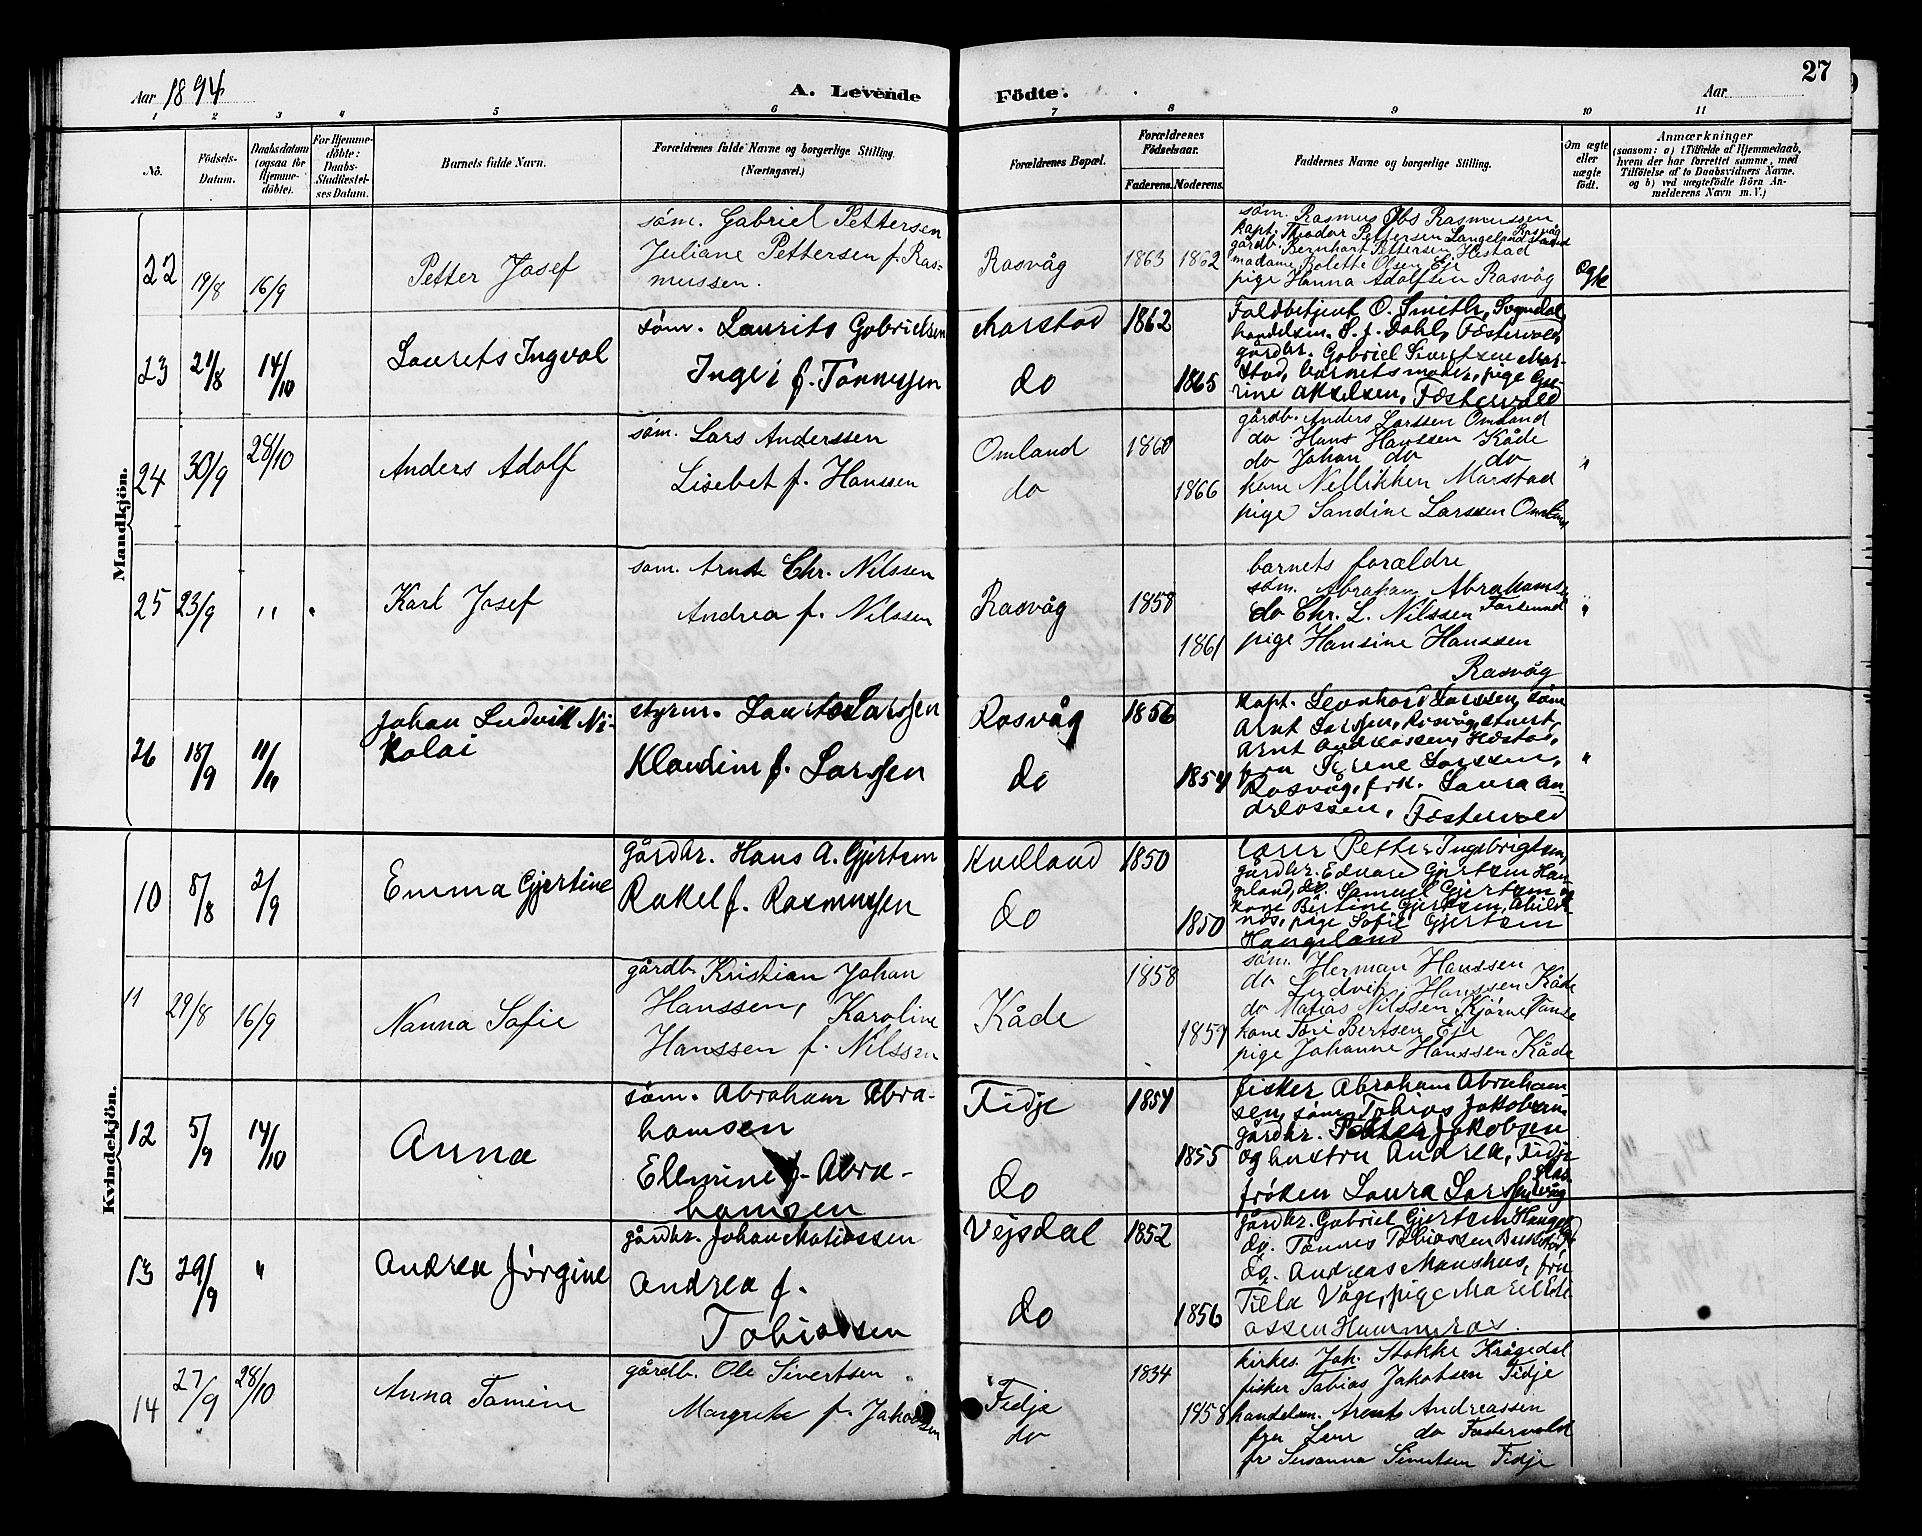 Aar 1894
A. Levende
Födte.
Aar
27
1 2 3 4 5 6 7 8 9 10 11
No.
Födsels-Datum.
Daabsdatum (ogsaa for Hjemmedöbte).
For Hjemmedöbte: Daabs-Stadfæstelses Datum.
Barnets fulde Navn.
Forældrenes fulde Navne og borgerlige Stilling. (Næringsvei.)
Forældrenes Bopæl.
Forældrenes Födselsaar.
Faderens. Moderens.
Faddernes Navne og borgerlige Stilling.
Om ægte eller uægte födt.
Anmærkninger
(saasom: a) i Tilfælde af Hjemmedaab, hvem der har forrettet samme, med Tilföielse af to Daabsvidners Navne, og b) ved uægtefödte Börn Anmelderens Navn m. V.)
Mandkjön.
22 19/8 16/9
Petter Josef
söm. Gabriel Pettersen
Juliane Pettersen f. Ras-
mussen.
Rasvåg
1863 1862
söm. Rasmus Obs Rasmussen
Rasvåg
kapt. Theodor Pettersen Langeland
gårdb. Bernhart Pettersen, Hestad
madame Bolette Olsen Eje
pige Hanna Adolfsen Rasvåg
Ægte
23 21/8 14/10
Laurets Ingval
söm. Laurits Gabrielsen
Inger f. Tønnessen
Marstad
do
1862
1865
Toldbetjent O. Smith, Sogndal
handelsm. S. J. Dahl, Fæstervold,
gårdbr. Gabriel Sivertsen Mar-
stad, barnets moder, pige Gu-
rine Akselsen, Fæstervold
24 30/9 28/10
Anders Adolf
söm. Lars Anderssen
Lisebet f. Hanssen
Omland
do
1860
1866
gårdb. Anders Larssen Omland
do Hans Hanssen Kåde
do Johan do do
kone Nellikken Marstad
pige Sandine Larssen Omland
"
25 23/9 "
Karl Josef
söm. Arnt Chr. Nilssen
Andrea f. Nilssen
Rasvåg
1858
1861
barnets forældre
söm. Abraham Abrahams.
Farsund
do Chr. L. Nilssen
pige Hansine Hanssen
Rasvåg
"
26 18/9 11/11
Johan Ludvik Ni-
kolai
styrm. Laurits Larssen
Klaudine f. Larssen
Rasvåg
do
1856
1854
kapt. Leonhard Larssen, söm
Arnt Larssen, Rasvåg, stuert
Arnt Andreassen, Hestad,
fru Serene Larssen,
Rasvåg, frk. Laura An-
dreassen, Fæstervold
"
Kvindekjön.
10 8/8 2/9
Emma Gjertine
gårdbr. Hans A. Gjertsen
Rakel f. Rasmussen
Kvelland
do
1850
1850
lærer Petter Ingebrigtsen,
gårdbr. Edvard Gjertsen Hau-
geland, do. Samuel Gjertsen og
kone Bertine Gjertsen, Abild-
nes, pige Sofie Gjertsen
Haugeland
11 29/8 16/9
Nanna Sofie
gårdb. Kristian Johan
Hanssen, Karoline
Hanssen f. Nilssen
Kåde
1858
1857
söm. Herman Hanssen
do Ludvik Hanssen Kåde
do Matias Nilssen Kjørne Vanse
kone Tori Bertsen Eje
pige Johanne Hanssen Kåde
12 5/9 14/10
Anna
söm. Abraham Abra-
hamsen
Elleine f. Abra-
hamsen
Fidje
do
1854
1855
fisker Abraham Abraham
sen, söm. Tobias Jakobsen
gårdbr. Petter Jakobsen
og hustru Andrea, Fidje
frøken Laura Larssen Rasvåg
13 29/9 "
Andrea Jörgine
gårdbr. Johan Matiassen
Andrea f.
Tobiassen
Vejsdal
do
1852
1856
gårdbr. Gabriel Gjertsen Haugel.
do. Tønnes Tobiassen
do. Andreas Monshus, fru
Tilla Våge, pige
Hummeros.
14 27/9 28/10
Anna Tomine
gårdb. Ole Sivertsen
Margrete f. Jakobsen
Fidje
do
1834
1858
kirkes. Joh. Stokke Krågedal
fisker Tobias Jakobsen Fidje
handelsm. Arent Andreassen
fru Lene do Fæstervold
fr Susanna Sivertsen Fidje